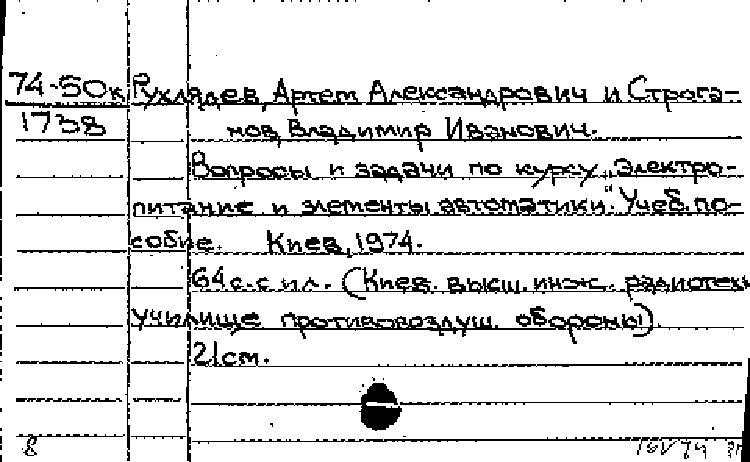 74-50к Рухлядев, Артем Александрович и Строга-
1738
нов, Владимир Иванович.
Вопросы и задачи по курсу „Электро-
питание и элементы автоматики". Учеб. по-
собие. Киев, 1974.
64 с. с ил. (Киев. высш. инж. радиотехн.
училище противовоздуш. обороны).
21 см.
8